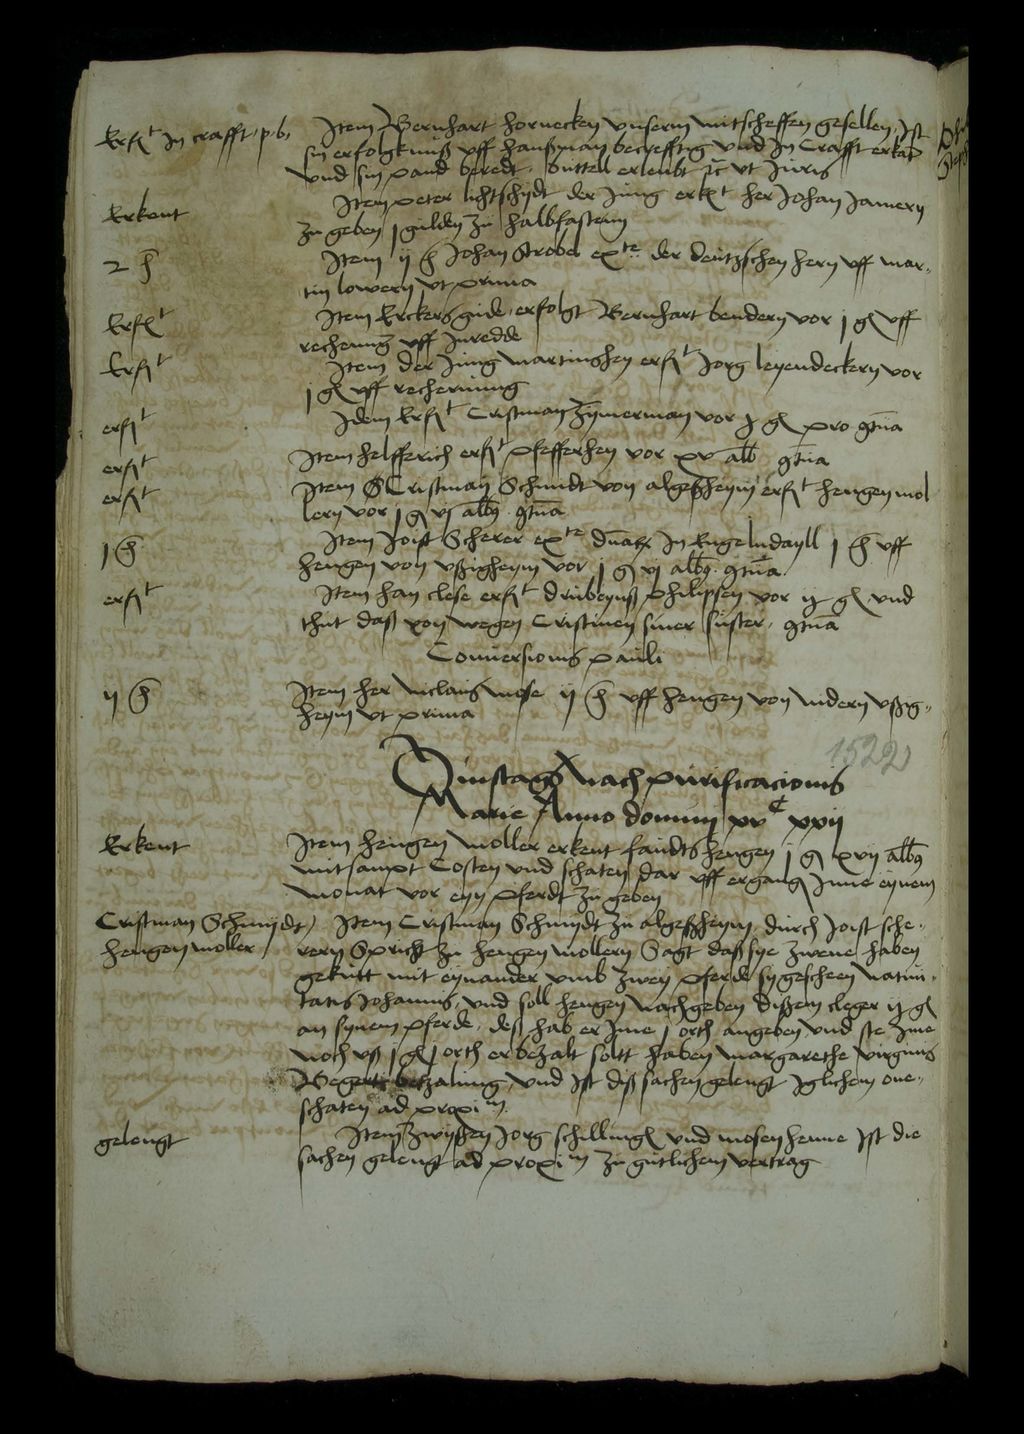 Erf(t) In crafft p b Item Bernhart hornecken unserm mitscheffen gesellen Ist
sin erfolgkniß uff hanßman becrefftig und In Crafft erkant
und sin pand beredt buttell erleubt ut Juris
Erkent Item peter lichtschydt der Jung erk(t) her Johan Jamern
zu geben j gulden zu halbfastenn
2 h Item ij h Johan Strobel ex te der deutzschen hern uff mar-
tin lowern ut prima
Erf(t) Item Erckersgude erfolgt Bernhart bendern vor j gl uff
rechenung uff Inredde
Erf(t) Item der Jung martinßhen erf(t) Jorg leyendeckern vor
j gl uff rechennung
erf(t) Idem Erf(t) Cristman zymerman vor j gl pro
erf(t) Item helfferich erf(t) Pfefferhen vor xv alb
erf(t) Item Cristman Schmidt von algeßheym erf(t) hengen mol
lern vor j gl vj alb
j h Item Joist Scherer ex te In Engelndayll j h uff
hengen von ußigheym vor j gl vj alb
erf(t) Item han clese erf(t) drubeynß philipsen vor ij gl und
thut daß von wegen Cristinen siner suster
Conversionis pauli
ij h Item her niclais wose ij h uff hengen von nidern ußig-
heym ut prima
1522
Dinstags nach purificacionis
Marie Anno domini xv C xxij
Erkent Item hengen moller erkent faudts hengen j gl xvij alb
mitsampt Costen und schaten dar uff ergangen Inne eynem
monat vor eyn pferdt zu geben
Cristman Schmydt Item Cristman Schmydt zu algeßheym durch Joist sche-
hengen moller rern Spricht zu hengen mollern Sagt daß sye zwene haben
gekutt mit eynander umb zwey pferde sy gescheen nativi-
tatis Johannis und soll hengen nachgeben dißem cleger ij gl
an synem pferde deß hab er Ime j orth angeben und ste Ime
noch uß j gl j orth er bezalt soltt haben margarethe virginis
Begert betzalung und Ist diß sachen gelengt Iglichem one-
schaten ad proxim
gelengt Item zwyßen Jorg schilling und mosenhenne Ist die
sachen gelengt ad proxim zu gutlichem vertrag